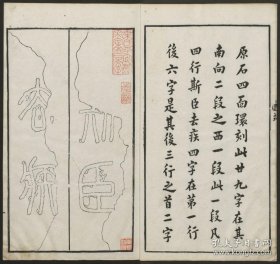 原石四面環刻此廿九字在其
南向二段之西一段此一段凡
四行斯臣去疾四字在第一行
後六字是其後三行之首二字
臣